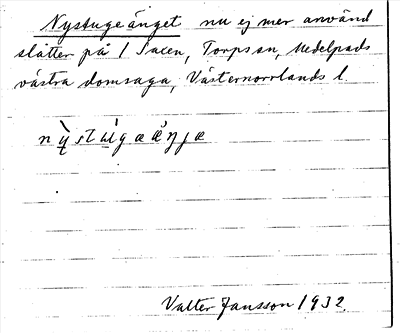 Nystugeänget nu ej mer använd
slåtter på 1 Saxen, Torps sn, Medelpads
västra domsaga, Västernorrlands l.
Valter Jansson 1932